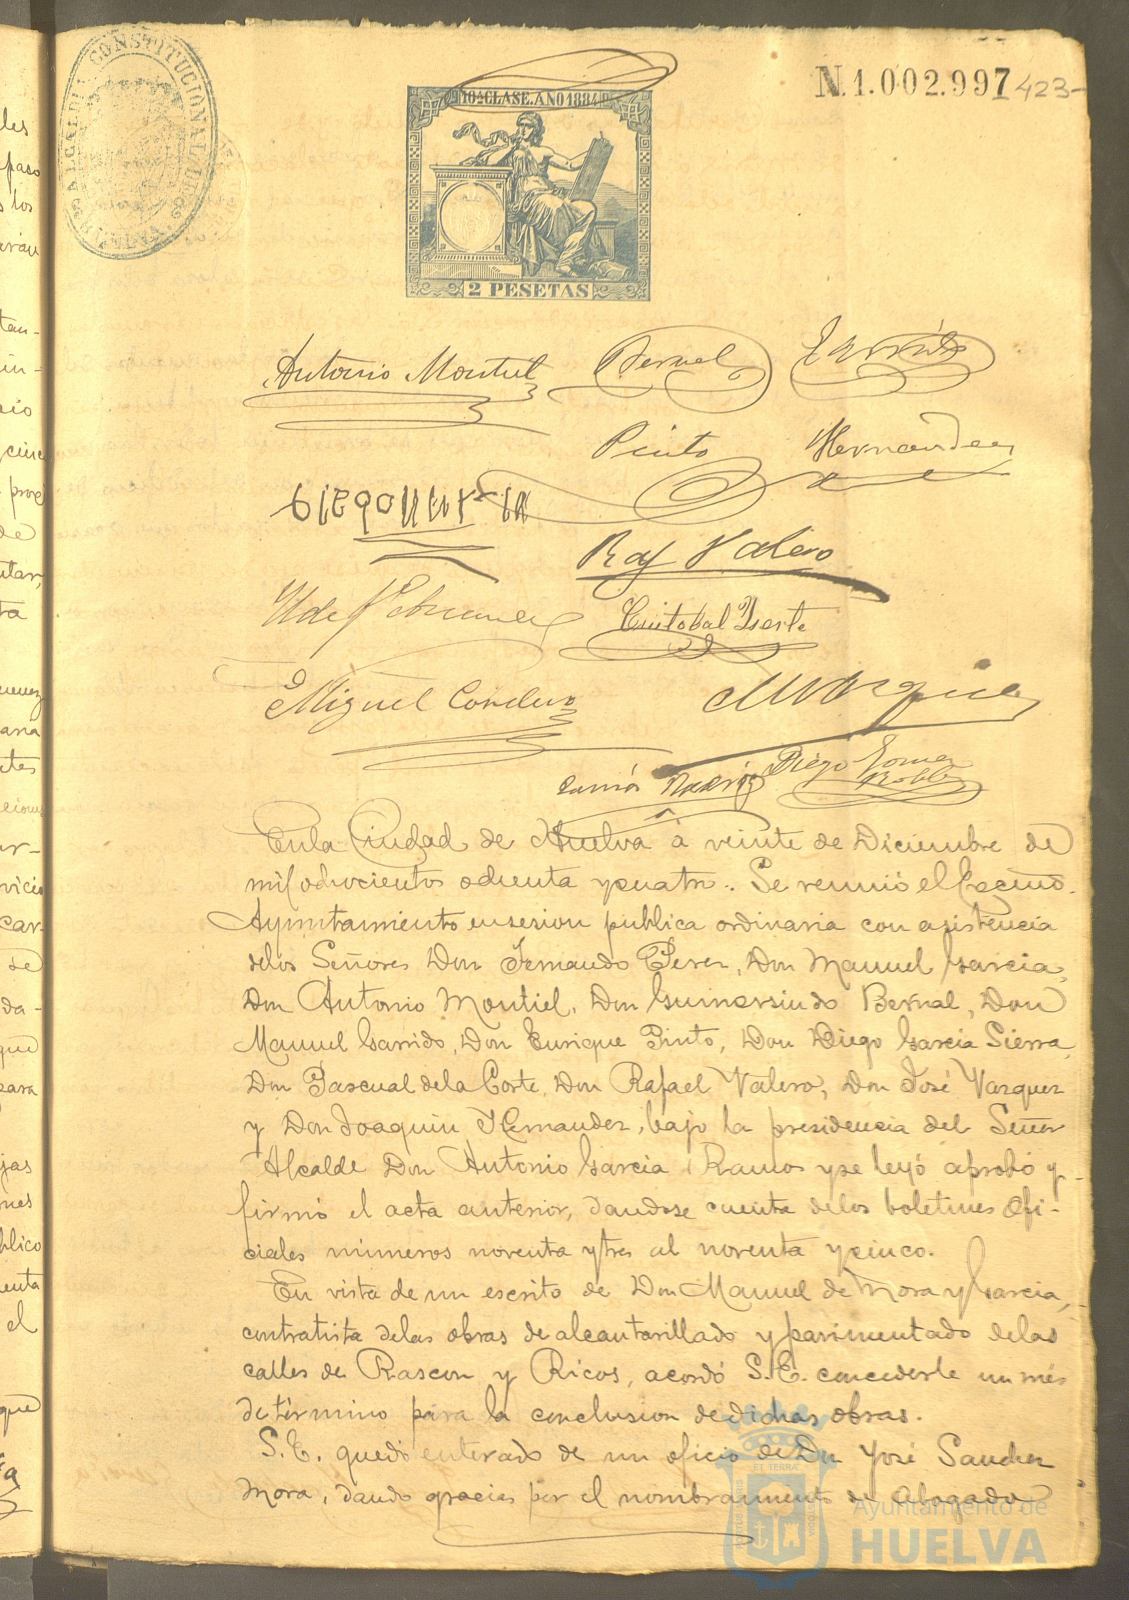 ALCALDIA CONSTITUCIONAL DE HUELVA
10ª CLASE. AÑO 1884
N.1.002.997
423-
2 PESETAS
Antonio Montiel Bernal Garrido
Pinto Hernandez
Raf Valero
Cristobal Yserte
Miguel Cordero
M Vazquez
Ramón Diego Gomez
Robl
En la Ciudad de Huelva á veinte de Diciembre de
mil ochocientos ochenta y cuatro. Se reunió el Excmo.
Ayuntamiento en sesion publica ordinaria con asistencia
de los Señores Don Fernando Perez, Don Manuel Garcia,
Don Antonio Montiel, Don Gumersindo Bernal, Don
Manuel Garrido, Don Enrique Pinto, Don Diego Garcia Sierra,
Don Pascual de la Corte, Don Rafael Valero, Don José Vazquez
y Don Joaquin Hernandez, bajo la presidencia del Señor
Alcalde Don Antonio Garcia Ramos y se leyó aprobó y
firmó el acta anterior, dandose cuenta de los boletines Ofi-
ciales números noventa y tres al noventa y cinco.
En vista de un escrito de Don Manuel de Mora y Garcia,
contratista de las obras de alcantarillado y pavimentado de las
calles de Rascon y Ricos, acordó S.E. concederle un més
de término para la conclusion de dichas obras.
S.E. quedó enterado de un oficio de Dn José Sanchez
Mora, dando gracias por el nombramiento de Abogado
Ayuntamiento de
HUELVA